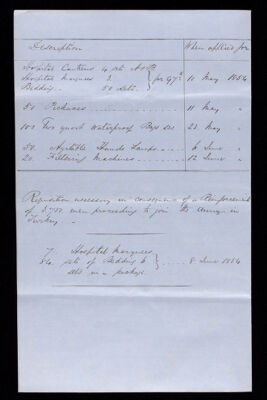 Description When applied for
Hospital Canteens 4 sets A & B
Hospital Marquees 3. for 97th 10 May 1854
Bedding 50 sets.
50 Pickaxes 11 May "
100 Two quart Waterproof Bags 22 May "
50. Portable Hand Lamps 6 June "
20. Filtering Machines 12 June "
Requisition necessary in consequence of a Reinforcement
of men proceeding to join the Army in
Turkey
7 Hospital Marquees
sets of Bedding 8 June 1854
sets in a package